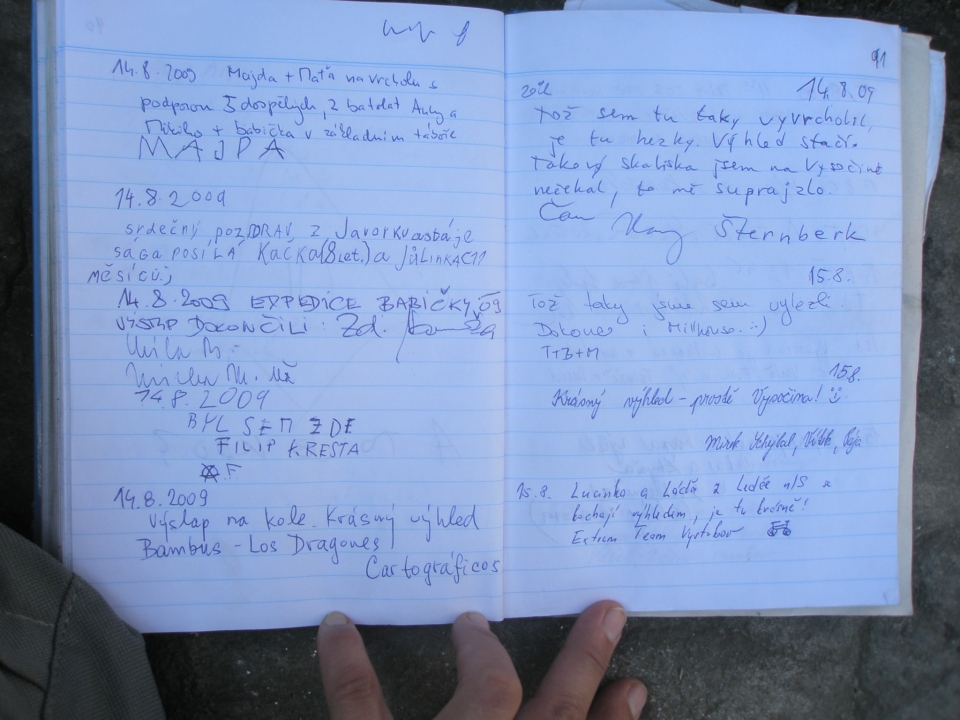 14.8.2009 Majda + Mata na vrcholu s
podporou 5 dospělých, 2 batolat Anky a
Mikiho + babička v základním táboře
MAJPA
14.8.2009
srdečný pozDRAV z Javorku
sága POSÍLÁ KAČKA(8let.) a JŮLINKA(11
MĚSÍCŮ;)
14.8.2009 EXPEDICE BABIČKY 09
VÝSTUP DOKONČILI: Zd.
14.8.2009
BYL SEM ZDE
FILIP KRESTA
F
14.8.2009
Výšlap na kole. Krásný výhled
Bambus - Los Dragones
Cartográficos
91
14.8.09
Tož sem tu taky vyvrcholil,
je tu hezky. Výhled stačí.
Takový skaliska jsem na Vysočině
nečekal, to mě suprajzlo.
Čau Šternberk
15.8.
Tož taky jsme sem vylezli.
Dokonce i Millhouse. :-)
T+B+M
15.8.
Krásný výhled - prostě Vysočina!
Mirek
15.8. Lucinka a Láďa z Ledče n/S se
kochají výhledem, je tu krásně!
Extrem Team